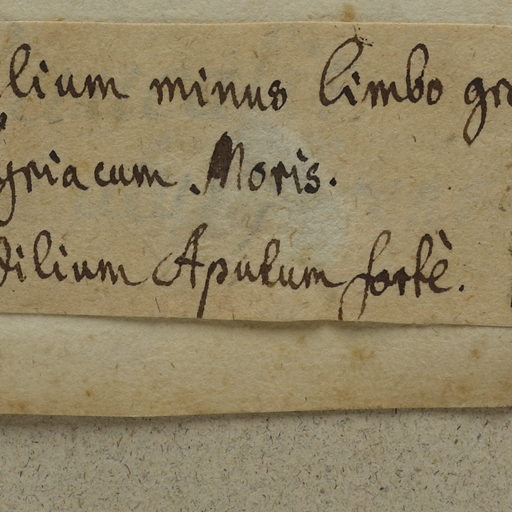 lium minus limbo gra
yriacum Moris.
dilium Apulum fortè.